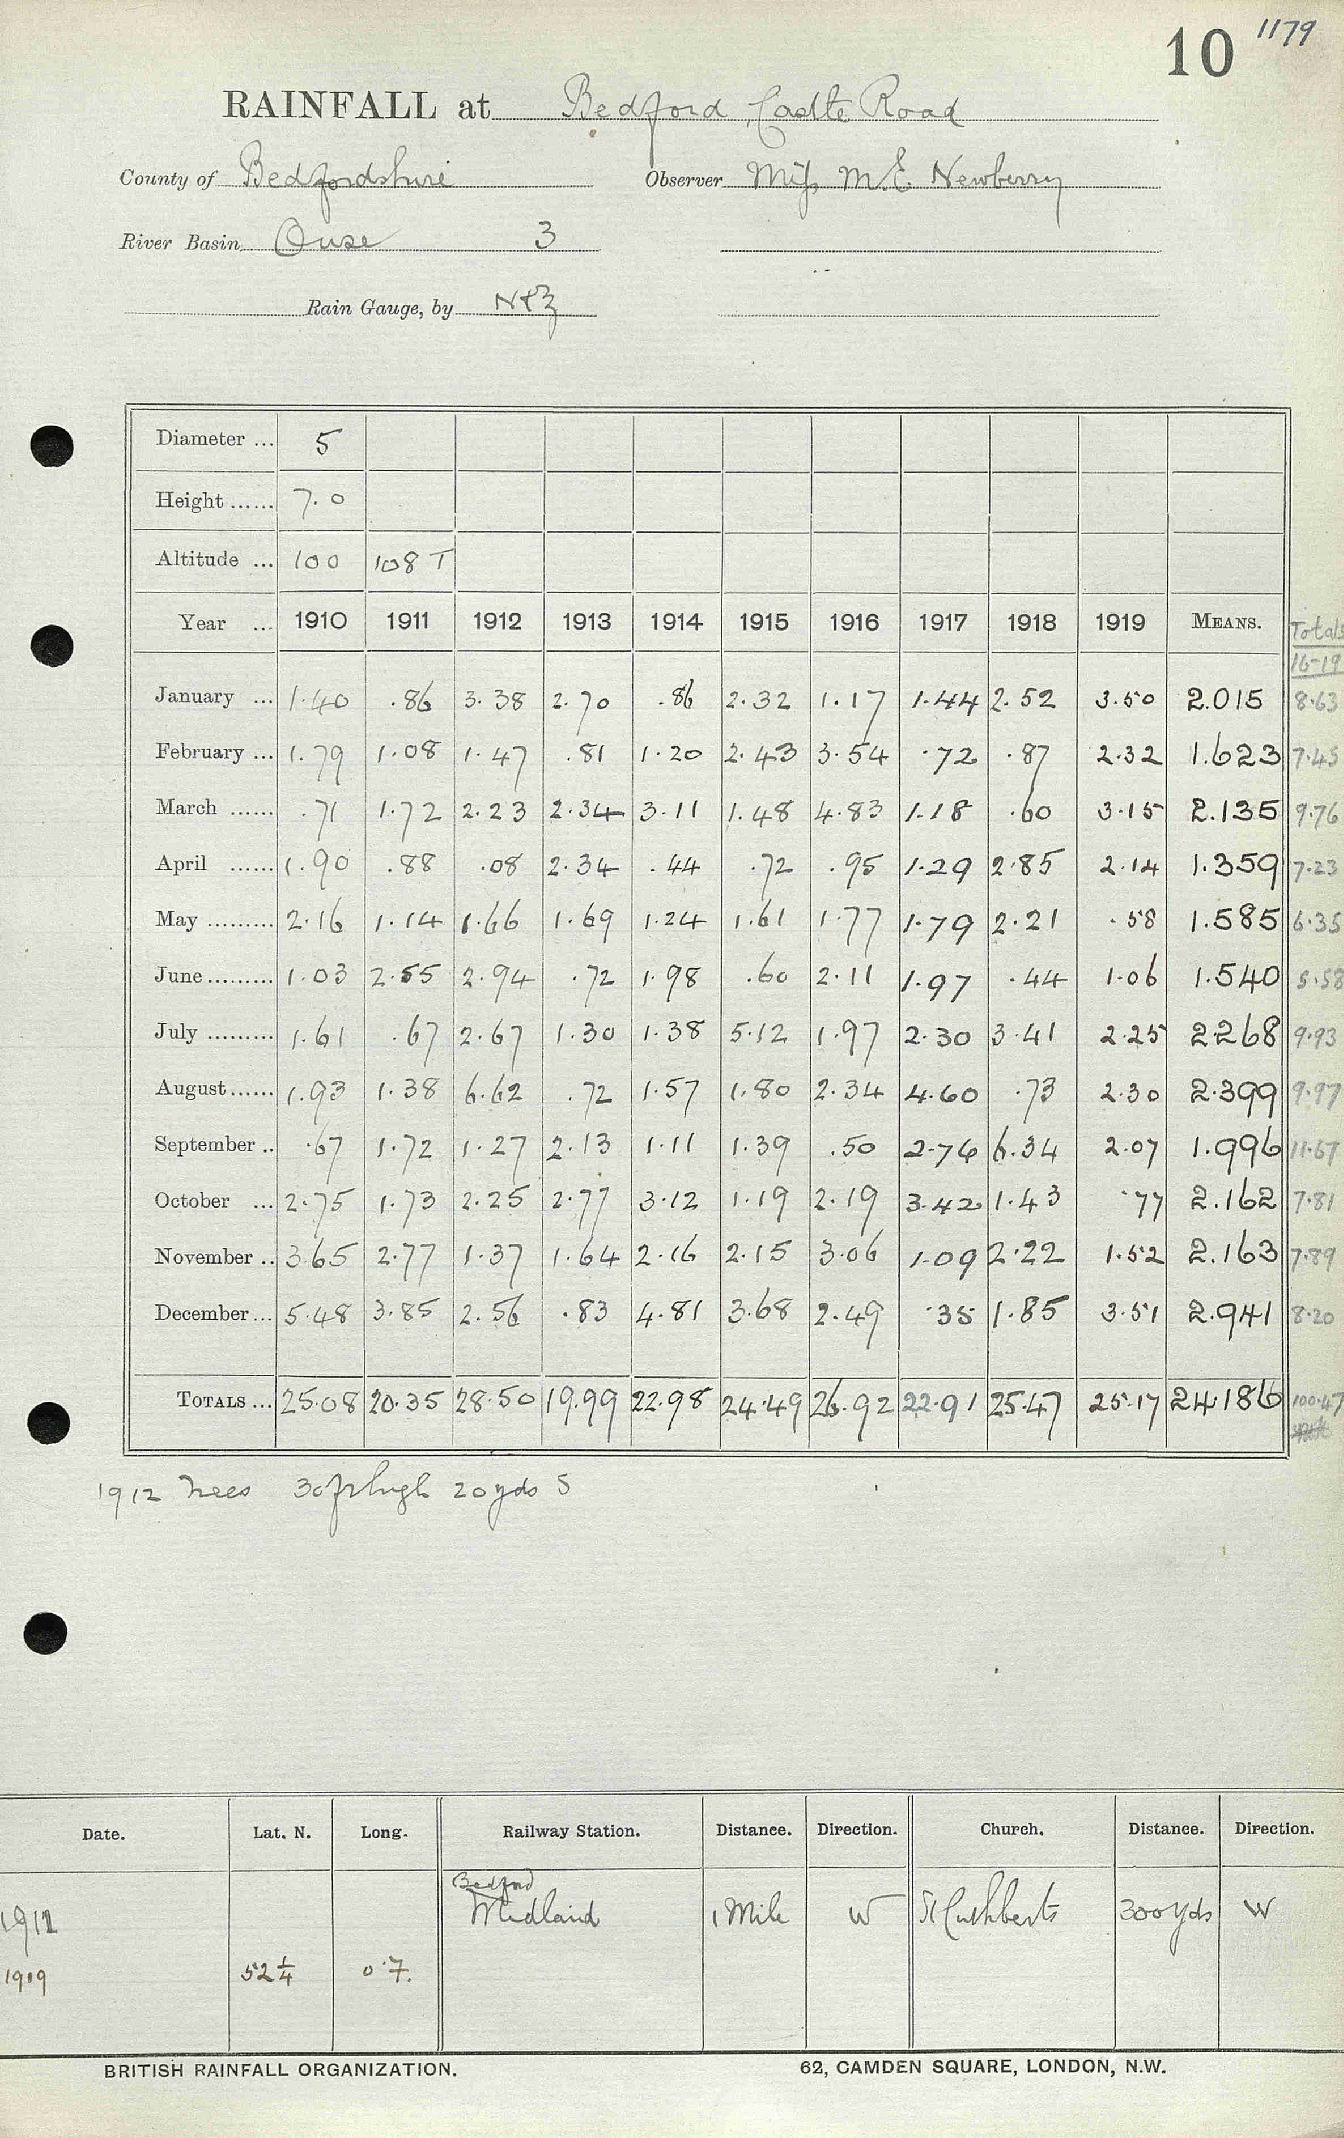 10 1179
RAINFALL at Bedford, Castle Road
County of Bedfordshire Observer Miss M.E. Newberry
River Basin Ouse 3
Rain Gauge, by N&Z
Diameter ... 5
Height ...... 7.0
Altitude ... 100 108 T
Year ... 1910 1911 1912 1913 1914 1915 1916 1917 1918 1919 MEANS. Totals
16-19
January ... 1.40 .86 3.38 2.70 .86 2.32 1.17 1.44 2.52 3.50 2.015 8.63
February ... 1.79 1.08 1.47 .81 1.20 2.43 3.54 .72 .87 2.32 1.623 7.45
March ...... .71 1.72 2.23 2.34 3.11 1.48 4.83 1.18 .60 3.15 2.135 9.76
April ...... 1.90 .88 .08 2.34 .44 .72 .95 1.29 2.85 2.14 1.359 7.23
May ......... 2.16 1.14 1.66 1.69 1.24 1.61 1.77 1.79 2.21 .58 1.585 6.35
June ......... 1.03 2.55 2.94 .72 1.98 .60 2.11 1.97 .44 1.06 1.540 5.58
July ......... 1.61 .67 2.67 1.30 1.38 5.12 1.97 2.30 3.41 2.25 2.268 9.93
August ...... 1.93 1.38 6.62 .72 1.57 1.80 2.34 4.60 .73 2.30 2.399 9.97
September .. .67 1.72 1.27 2.13 1.11 1.39 .50 2.76 6.34 2.07 1.996 11.67
October ... 2.75 1.73 2.25 2.77 3.12 1.19 2.19 3.42 1.43 .77 2.162 7.81
November .. 3.65 2.77 1.37 1.64 2.16 2.15 3.06 1.09 2.22 1.52 2.163 7.89
December ... 5.48 3.85 2.56 .83 4.81 3.68 2.49 .35 1.85 3.51 2.941 8.20
TOTALS ... 25.08 20.35 28.50 19.99 22.98 24.49 26.92 22.91 25.47 25.17 24.186 100.47
1912 Trees 30ft high 20yds S
Date. Lat. N. Long. Railway Station. Distance. Direction. Church. Distance. Direction.
Bedford
1912 Midland 1 Mile W St Cuthberts 300yds W
1919 52¼ 0.7.
BRITISH RAINFALL ORGANIZATION. 62, CAMDEN SQUARE, LONDON, N.W.